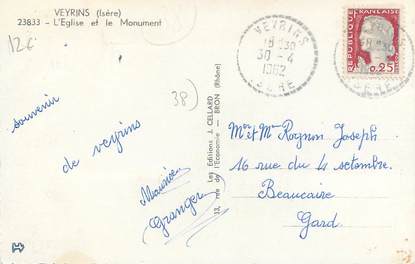 VEYRINS (Isère)
23833 - L'Eglise et le Monument
12€
38)
souvenir
de veyrins
Maurice
Granger
Les Editions J. CELLARD
13, rue de l'Economie - BRON (Rhône)
VEYRINS
18H30
30-4
1962
ISERE
REPUBLIQUE FRANÇAISE
0,25
Mr et Mme Rognon Joseph
16 rue du 4 septembre
Beaucaire
Gard.